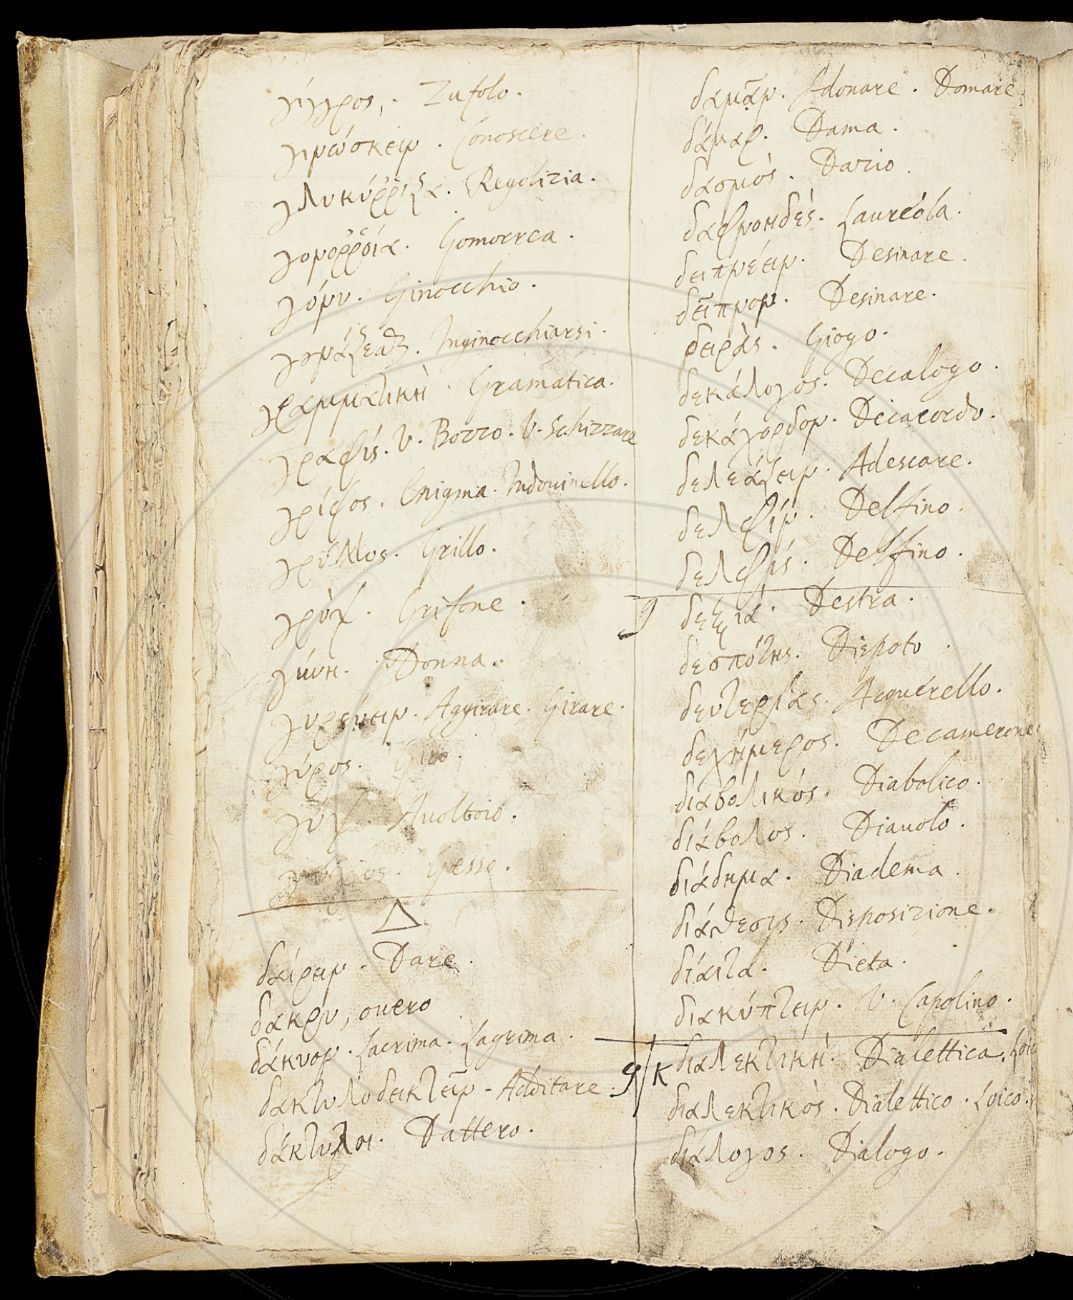 γίγγρος. Zufolo.
γινώσκειν. Conoscere.
γλυκύῤῥιζα. Regolizia.
γονοῤῥοία. Gomorrea.
γόνυ. Ginocchio.
Inginocchiarsi.
γραμματική. Gramatica.
γραφίς. V. Bozzo. V. Schizzare
γρίφος. Enigma. Indovinello.
γρύλλος. Grillo.
γρὺψ. Grifone.
γύνη. Donna.
γυρεύειν. Aggirare. Girare.
γύρος. Giro.
γύψ. Avoltoio.
Gesso.
Δ
δαίρειν. Dare.
δάκρυ, overo
δάκρυον. Lacrima. Lagrima.
δακτυλοδεικτεῖν. Additare.
δάκτυλοι. Dattero.
δαμᾷν. Adonare. Domare.
δάμαρ. Dama.
δασμὸς. Dazio.
δαφνοειδές. Laureola.
δειπνέειν. Desinare.
δεῖπνον. Desinare.
δειράς. Giogo.
δεκάλογος. Decalogo.
δεκάχορδον. Decacordo.
δελεάζειν. Adescare.
δελφίν. Delfino.
δελφίς. Delfino.
9 δεξιά. Destra.
δεσπότης. Dispoto.
δευτερίας. Acquerello.
δεχήμερος. Decamerone
διαβολικός. Diabolico.
διάβολος. Diavolo.
διάδημα. Diadema.
διάθεσις. Disposizione.
δίαιτα. Dieta.
διακύπτειν. V. Capolino.
9 K διαλεκτική. Dialettica.
διαλεκτικὸς. Dialettico. Loico.
διάλογος. Dialogo.